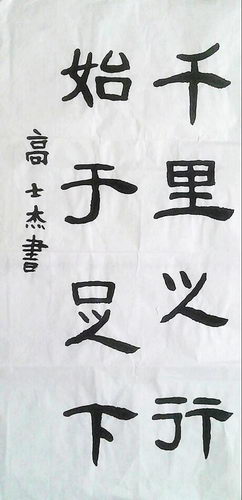 千里之行
始于足下
高士杰書